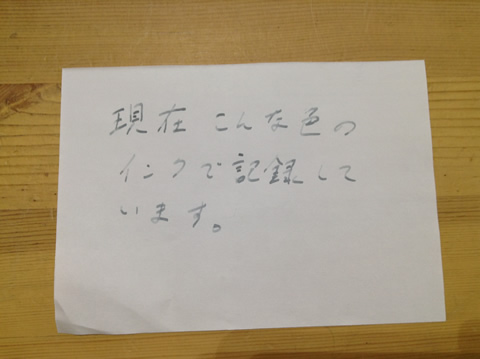 現在 こんな色の
インクで記録して
います。